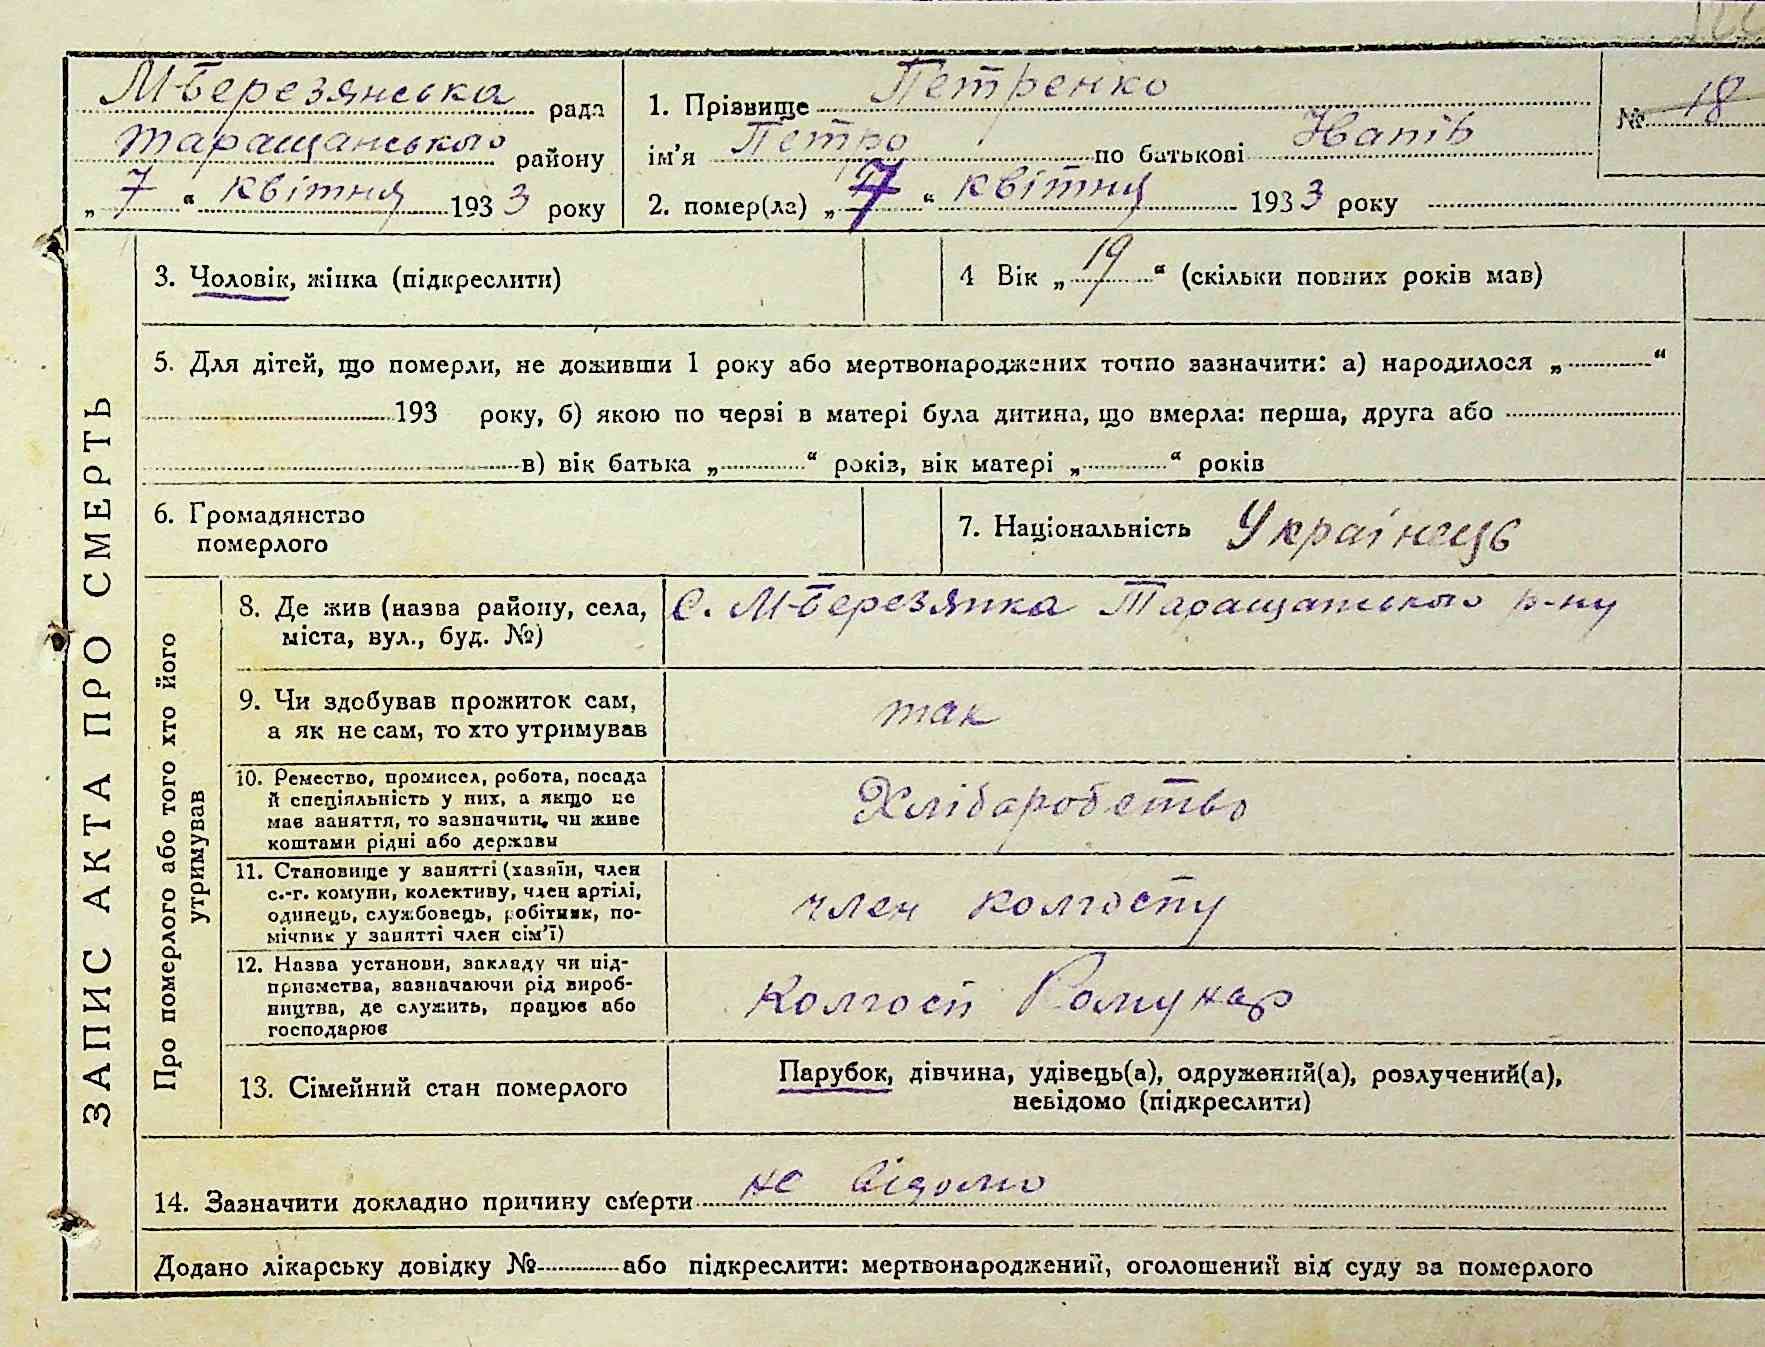 М-Березянська рада
Таращанського району
„ 7 “ квітня 1933 року
1. Прізвище Петренко
ім'я Петро по батькові
2. помер(ла) „ 7 “ квітня 1933 року
№ 18
ЗАПИС АКТА ПРО СМЕРТЬ
3. Чоловік, жінка (підкреслити)
4 Вік „ 19 “ (скільки повних років мав)
5. Для дітей, що померли, не доживши 1 року або мертвонароджених точно зазначити: а) народилося „ “
193 року, б) якою по черзі в матері була дитина, що вмерла: перша, друга або
в) вік батька „ “ років, вік матері „ “ років
6. Громадянство
померлого
7. Національність Українець
Про померлого або того хто його
утримував
8. Де жив (назва району, села,
міста, вул., буд. №)
С. М-Березянка Таращанського р-ну
9. Чи здобував прожиток сам,
а як не сам, то хто утримував
так
10. Ремество, промисел, робота, посада
й спеціяльність у них, а якщо не
має заняття, то зазначити, чи живе
коштами рідні або держави
Хліборобство
11. Становище у занятті (хазяїн, член
с.-г. комуни, колективу, член артілі,
одинець, службовець, робітник, по-
мічник у занятті член сім'ї)
член колгоспу
12. Назва установи, закладу чи під-
приємства, зазначаючи рід вироб-
ництва, де служить, працює або
господарює
Колгосп Комунар
13. Сімейний стан померлого
Парубок, дівчина, удівець(а), одружений(а), розлучений(а),
невідомо (підкреслити)
14. Зазначити докладно причину смерти не відомо
Додано лікарську довідку № або підкреслити: мертвонароджений, оголошений від суду за померлого